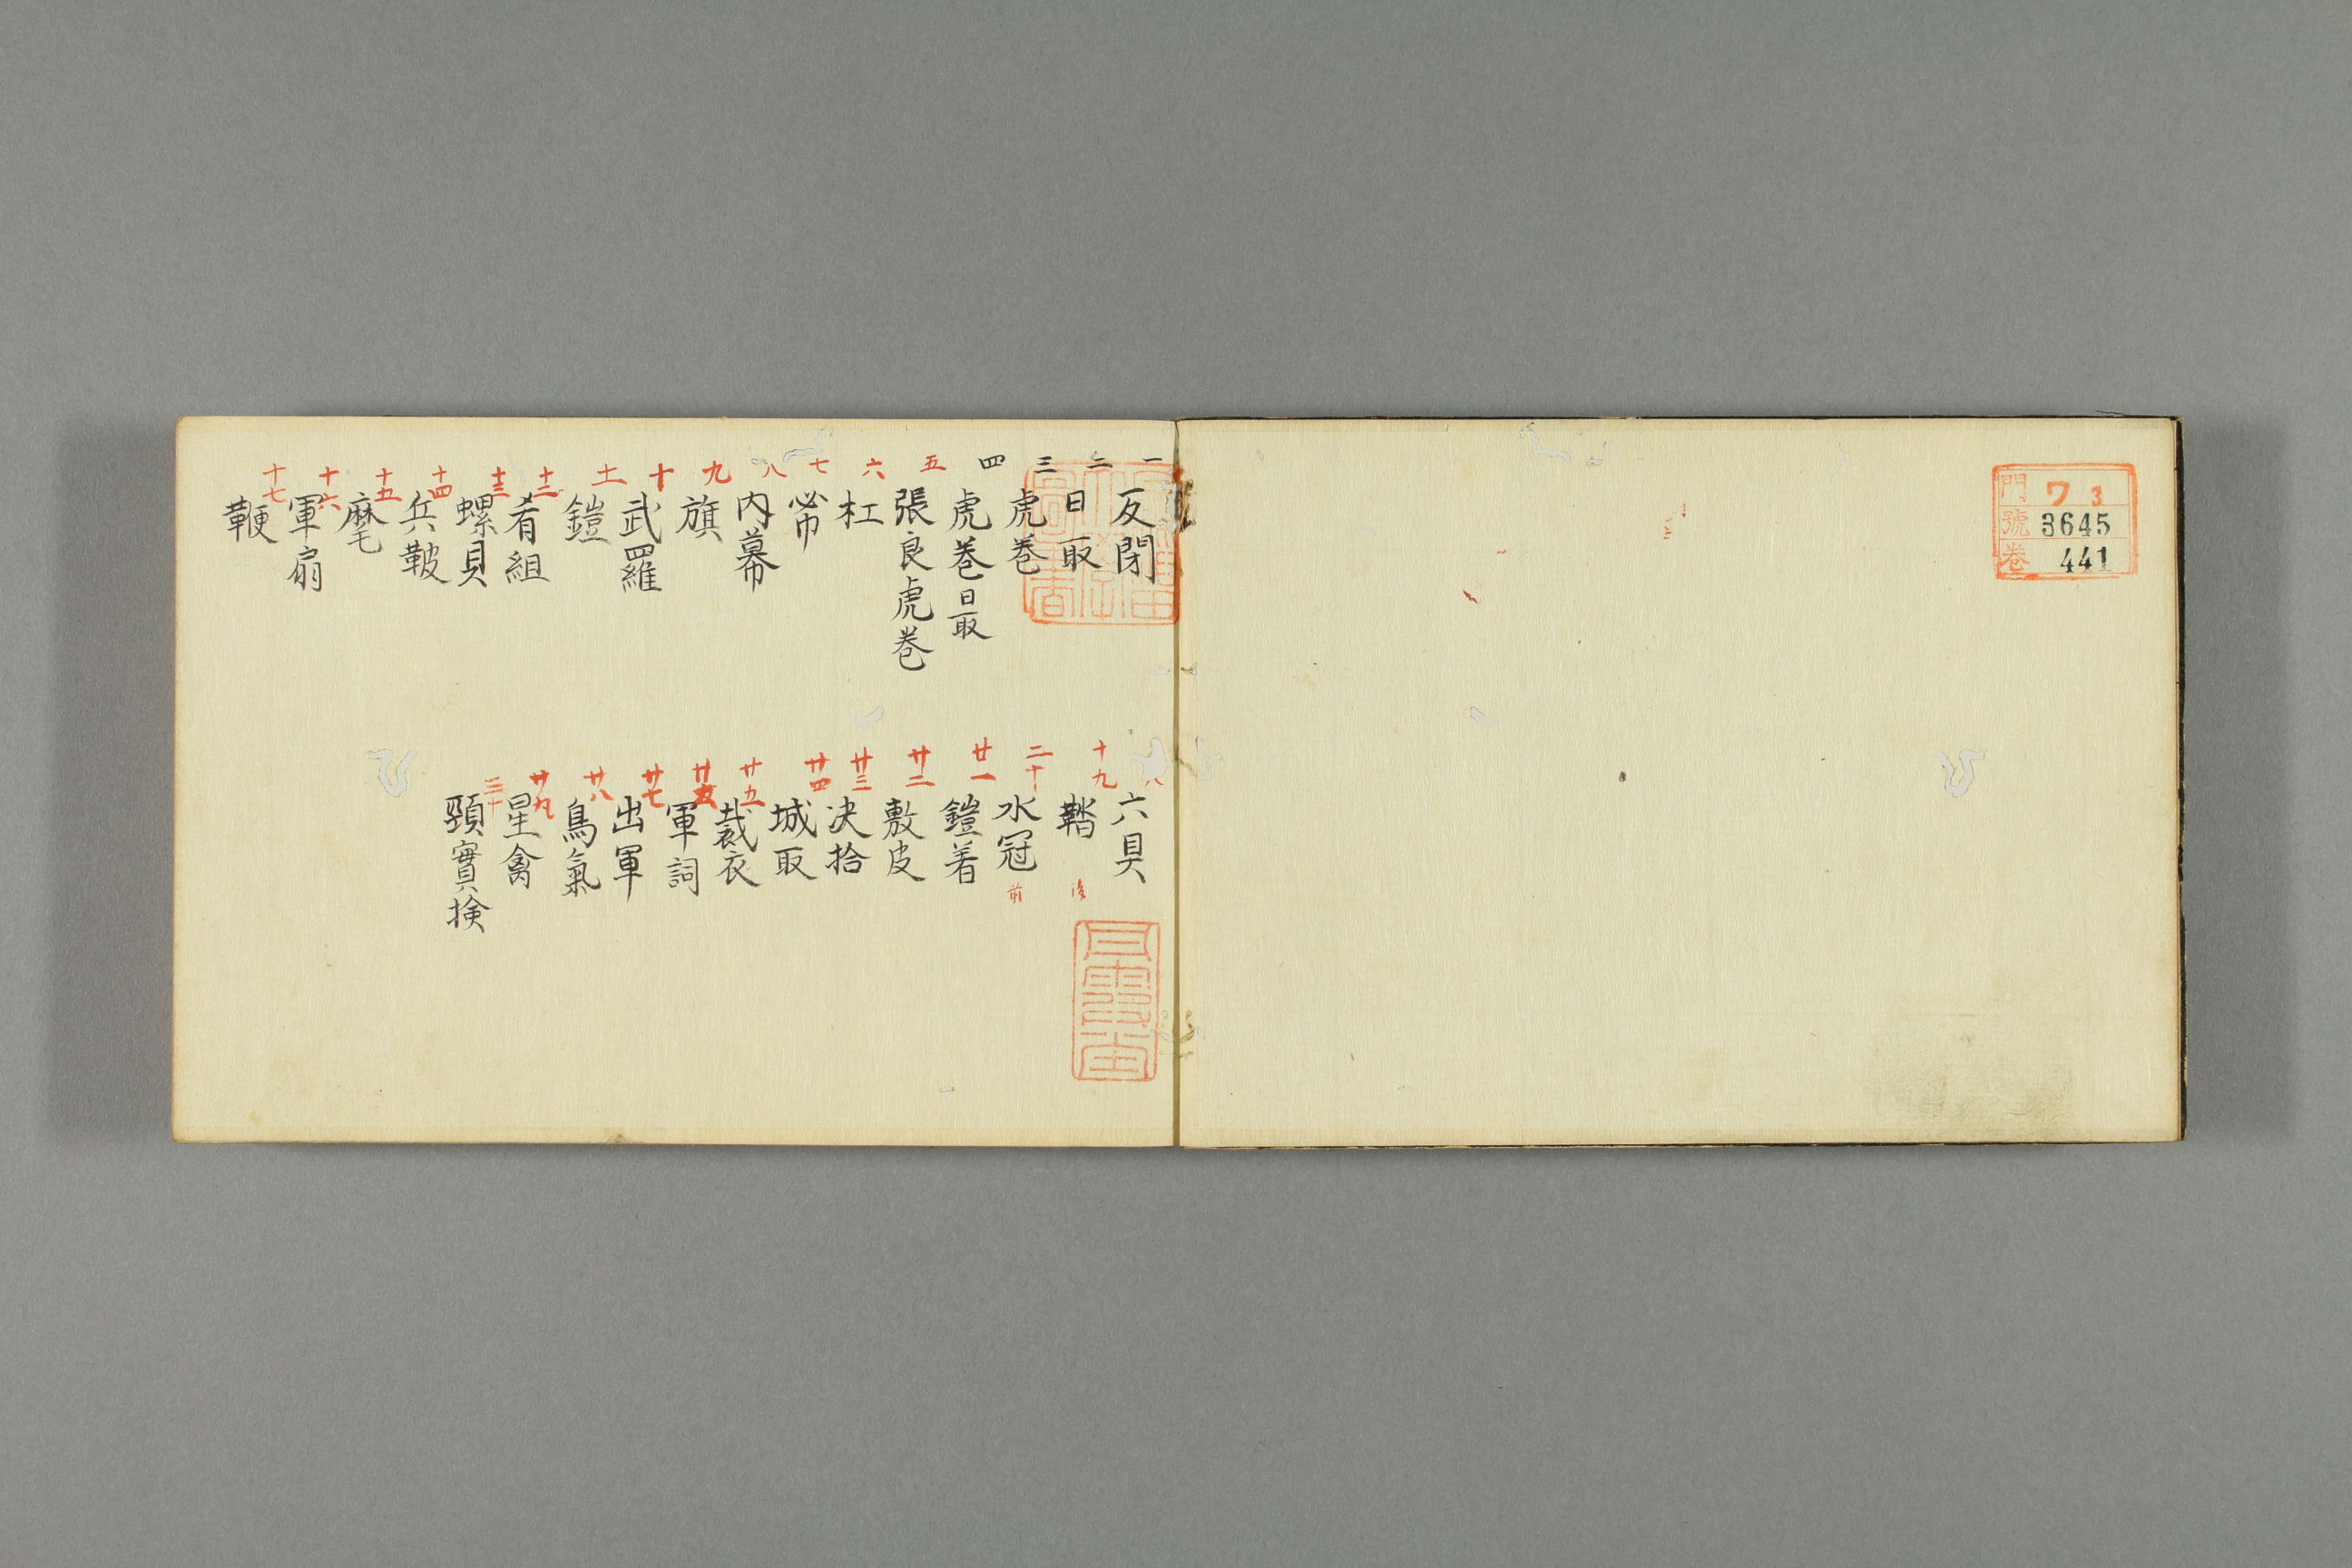 門 ワ 3
號 3645
卷 441
一 反閇
二 日取
三 虎巻
四 虎巻日取
五 張良虎巻
六 杠
七
八 内幕
九 旗
十 武羅
十一 鎧
十二 肴組
十三 螺貝
十四 兵鞁
十五 麾
十六 軍扇
十七 鞭
八 六具
十九 鞜 後
二十 水冠 前
廿一 鎧着
廿二 敷皮
廿三 决拾
廿四 城取
廿五 裁衣
軍詞
廿七 出軍
廿八 鳥氣
廿九 星禽
三十 頸實検